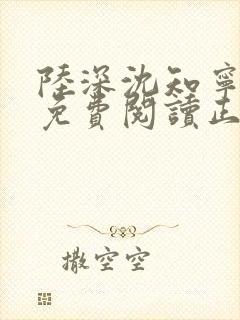 陸深沈知寧
免費閱讀正
撒空空